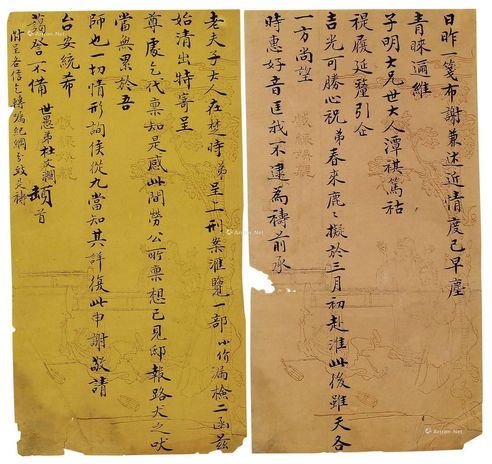 日昨一箋布謝兼述近情度已早塵
青睞遍維
子明大兄世大人潭祺篤祜
禔履延釐引企
吉光可勝心祝弟春來鹿鹿擬於三月初赴淮此後雖天各
一方尚望
時惠好音匡我不逮為禱前承
老夫子大人在楚時弟呈上刑案滙覽一部小价漏檢二函茲
始清出特寄呈
尊處乞代稟知是感此間勞公所稟想已見邸報路犬之吠
當無累於吾
師也一切情形詢侯從九當知其詳復此申謝敬請
台安統希
藹詧不備 世愚弟杜文瀾頓首
附呈各信乞轉囑紀綱分致是禱